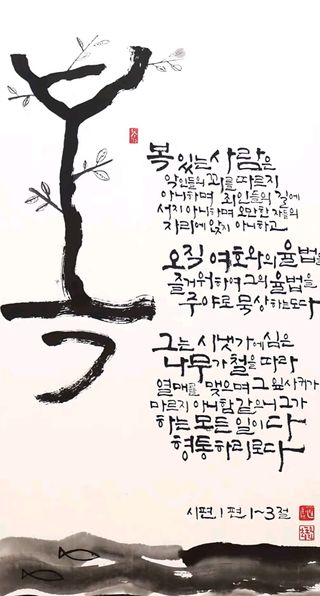 복
복 있는 사람은
악인들의 꾀를 따르지
아니하며 죄인들의 길에
서지 아니하며 오만한 자들의
자리에 앉지 아니하고
오직 여호와의 율법을
즐거워하여 그의 율법을
주야로 묵상하는도다
그는 시냇가에 심은
나무가 철을 따라
열매를 맺으며 그 잎사귀가
마르지 아니함 같으니 그가
하는 모든 일이 다
형통하리로다
시편 1편 1~3절